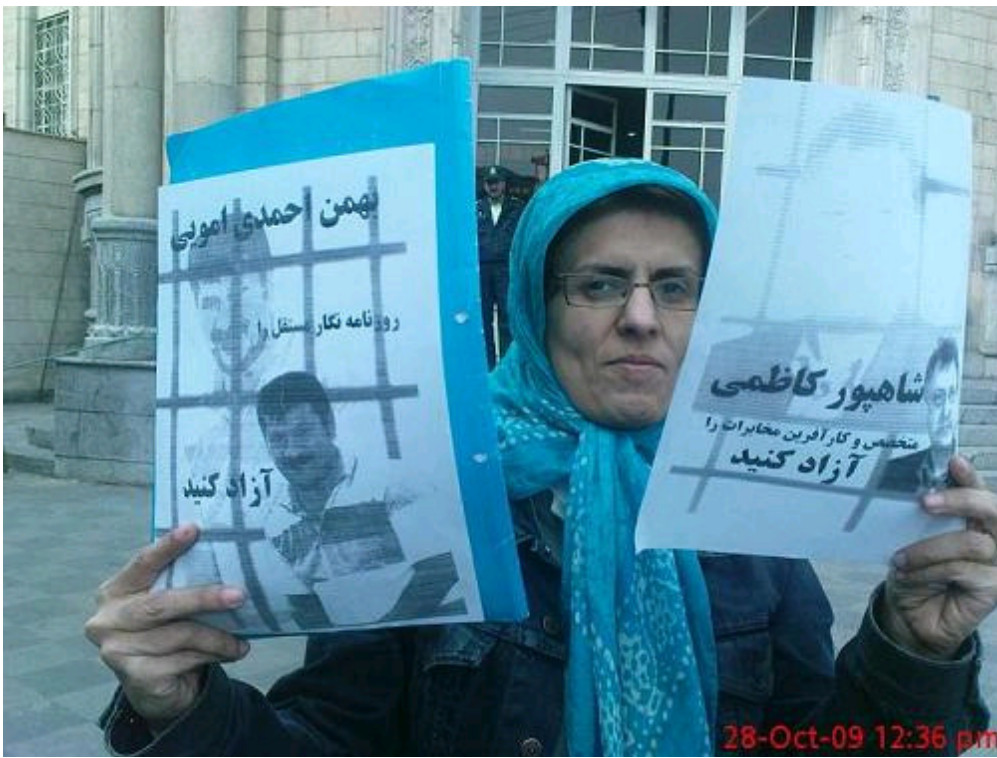 بهمن احمدی امویی
روزنامه نگار مستقل را
آزاد کنید
شاهپور کاظمی
متخصص و کارآفرین مخابرات را
آزاد کنید
28-Oct-09 12:36 pm